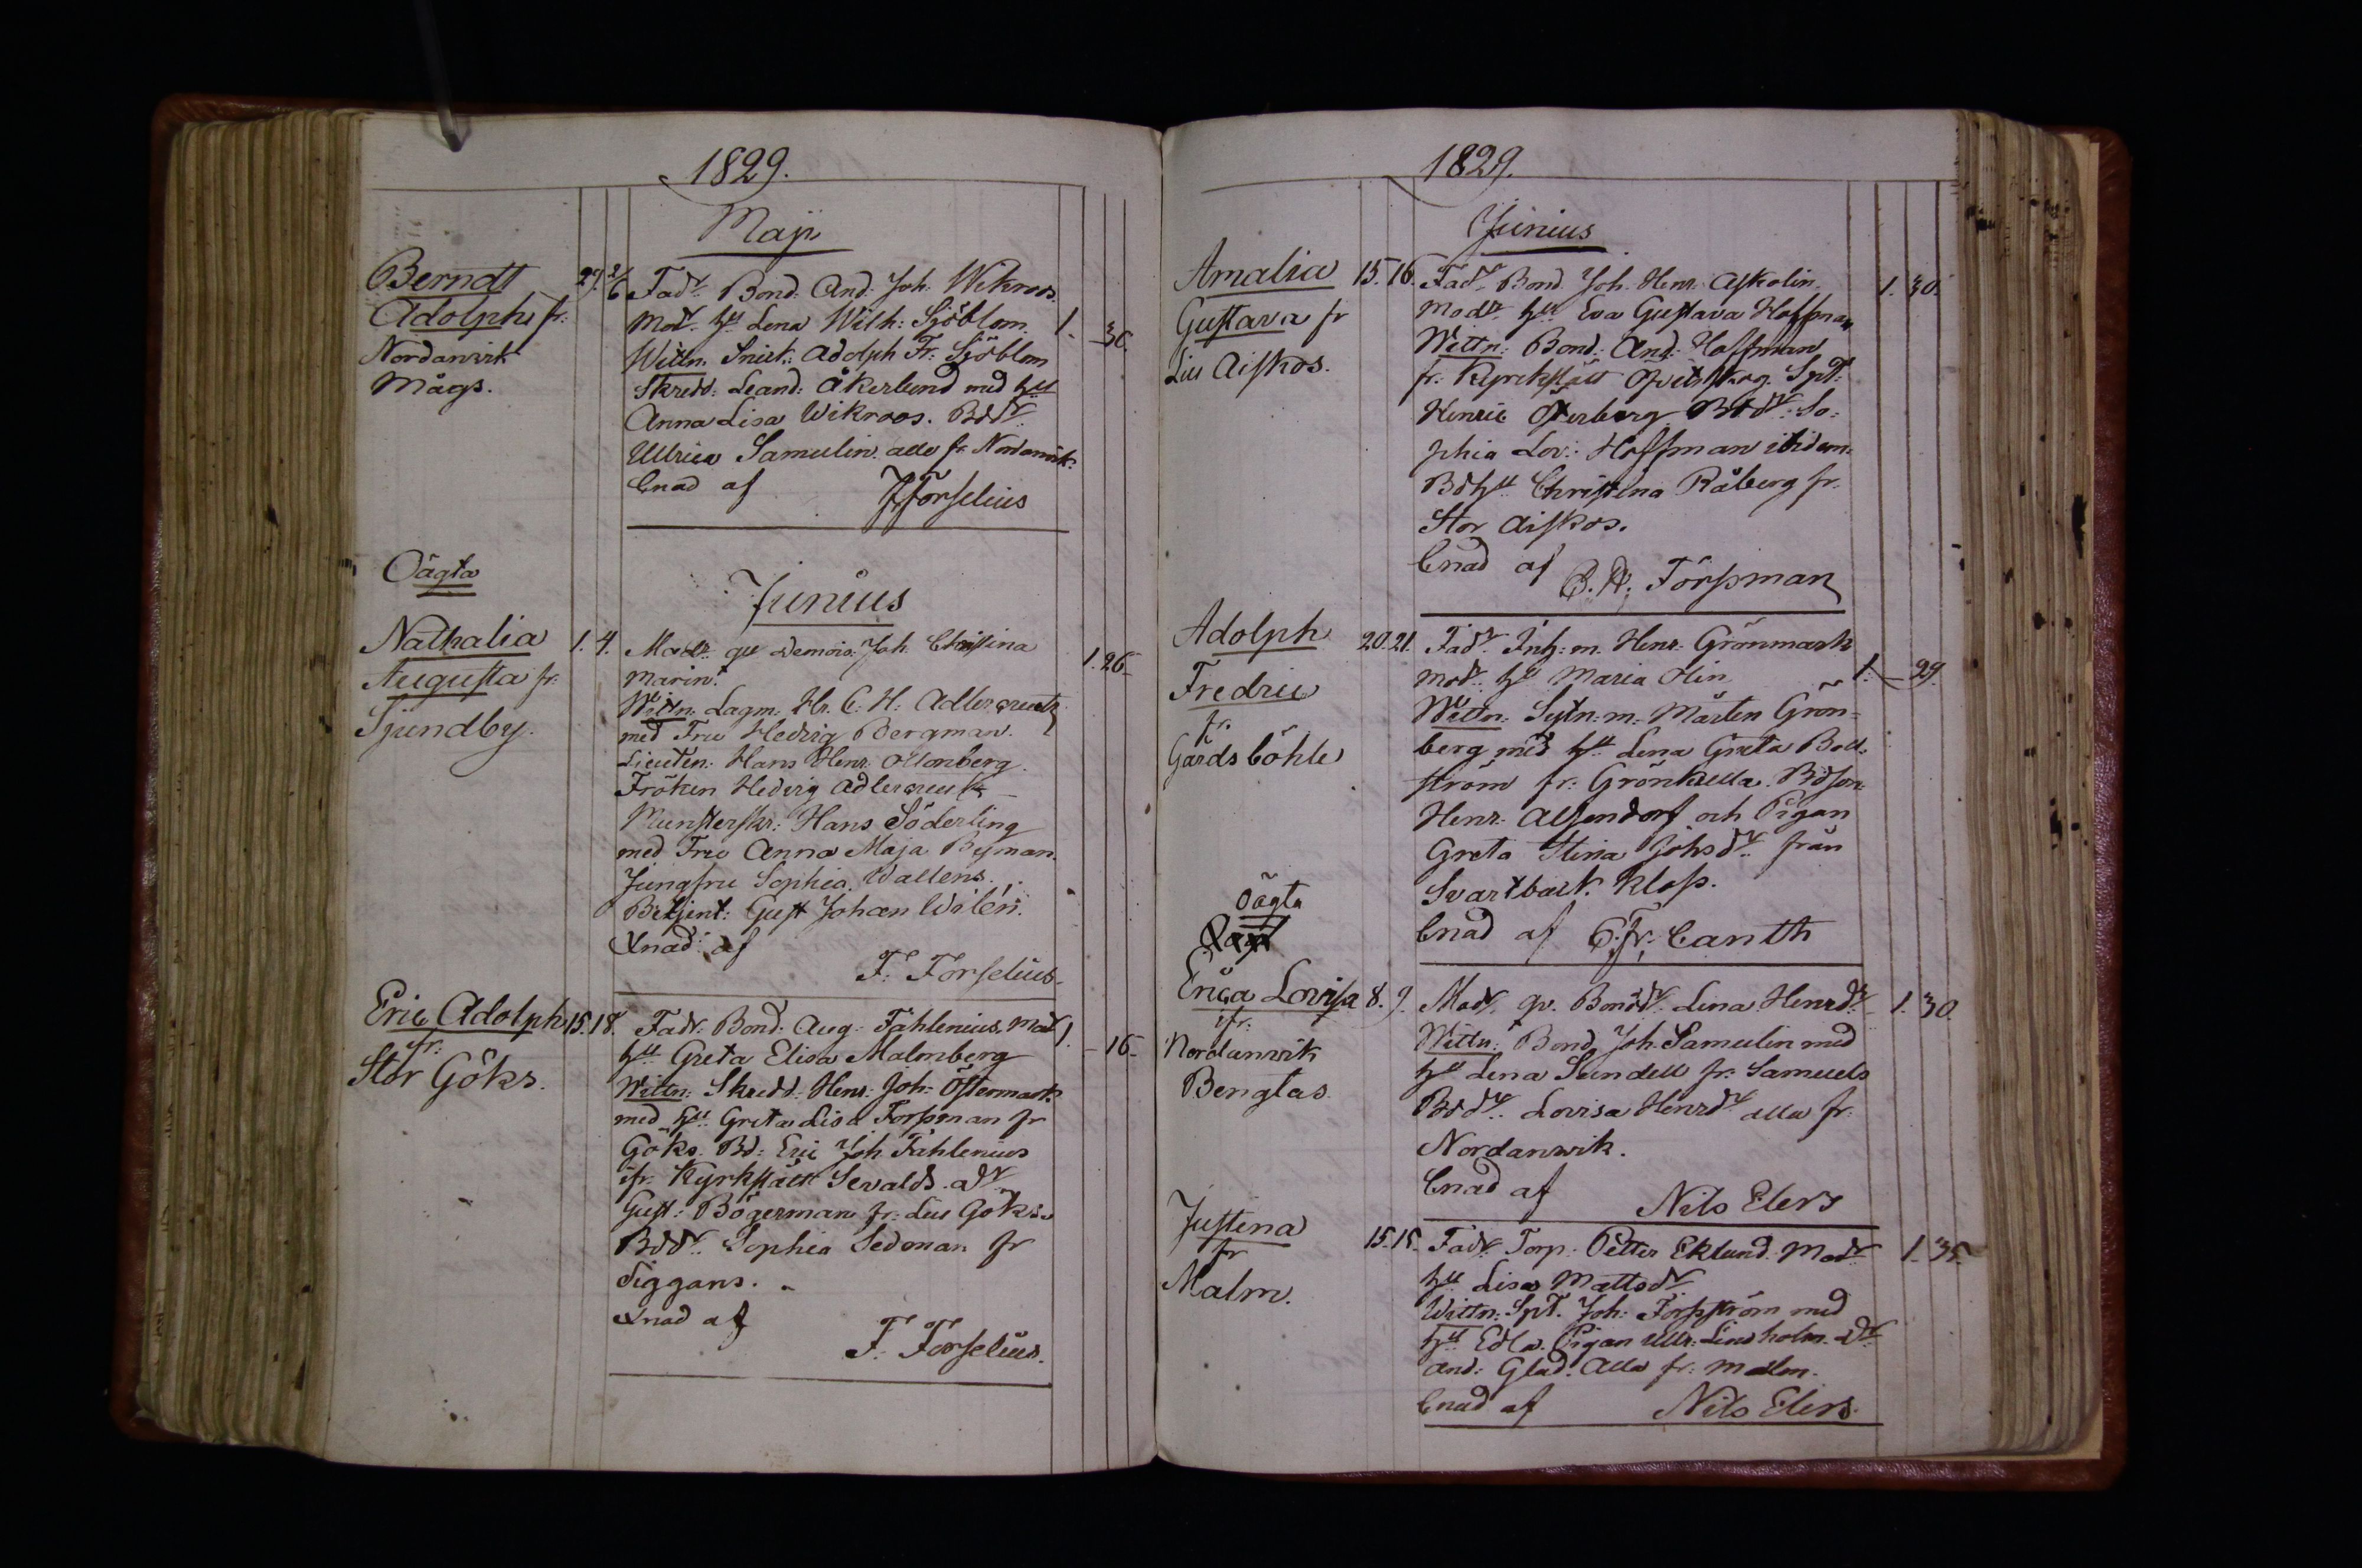 1829.
Maji
Berndt
Adolph fr.
Nordanvik
Mågs.
29. 2/6
Fadr. Bond. And. Joh. Wikroos.
Modr. hu. Lena Wilh: Sjöblom.
1. 30.
Wittn: Snick: Adolph Fr: Sjöblom
Skredd: Leand: Åkerlund med hu
Anna Lisa Wikroos. Bddr.
Ullrica Samulin. alla fr. Nordanvik.
Cnad af F Forselius
Oägta
Junius
Nathalia
Augusta fr.
Sjundby.
1. 4.
Modr. qu. Demois. Joh. Christina
Marin.
1. 26
Wittn: Lagm. Hr. C. H. Adlercreutz
med Fru Hedvig Bergman.
Lieuten: Hans Henr.
Fröken Hedvig Adlercreutz
Munsterskr: Hans Söderling
med Fru Anna Maja Byman.
Jungfru Sophia Wallens.
Betjent: Gust Johan Wilén.
Xnad af
F. Forselius
Eric Adolph
fr.
Stor Göks.
15. 18.
Fadr. Bond. Aug. Fahlenius, Mod
1. 16
hu. Greta Elisa Malmberg
Wittn: Skredd. Henr. Joh. Östermark
med hu. Greta Lisa Forsman fr
Göks. Bd: Eric Joh Fahlenius
fr. Kyrkslätt Sevalds. Dr.
Gust: Bögerman fr. Lill Göks.
Bddr. Sophia Sedman fr
Siggans.
Xnad af
F. Forselius.
1829.
Junius
Amalia
Gustava fr
Lill Aiskos.
15. 16.
Fadr. Bond. Joh. Henr. Askolin.
1. 30.
Modr. hu. Eva Gustava Hoffman
Wittn: Bond. And. Hoffman
fr. Kyrckslätt Spt.
Henric Österberg Bddr. So-
phia Lov: Hoffman ibidem.
Bdhu. Christina Råberg fr.
Stor Aiskos.
Cnad af C. A. Forssman
Adolph
Fredric
fr.
Gårdsböhle
20. 21.
Fadr. Inh: m. Henr. Grönmark
Modr. hu Maria Olin
1. 29.
Wittn: Sytn: m. Mårten Grön-
berg med hu. Lena Greta Boll-
ström fr. Grönkulla. Bdson.
Henr. Allendorf och Pigan
Greta Stina Johsdr. från
Svartback. Kloss.
Cnad af C. Fr. Canth
Oägta
Erica Lovisa
fr.
Nordanwik
Benglas.
8. 9.
Modr. qv. Bonddr. Lena Henrdr.
1. 30.
Wittn: Bond. Joh. Samulin med
hu Lena Sundell fr. Samuels
Bddr. Lovisa Henrdr alla fr.
Nordanwik.
Cnad af
Nils Elers
Justina
fr
Malm.
15. 15.
Fadr. Torp. Petter Eklund. Modr.
1. 35.
hu Lisa Mattsdr.
Wittn: Spt. Joh. Forsström med
hu Edla. Pigan Ullr. Lindholm. Dr.
And: Glad. Alla fr. Malm.
Cnad af Nils Elers.